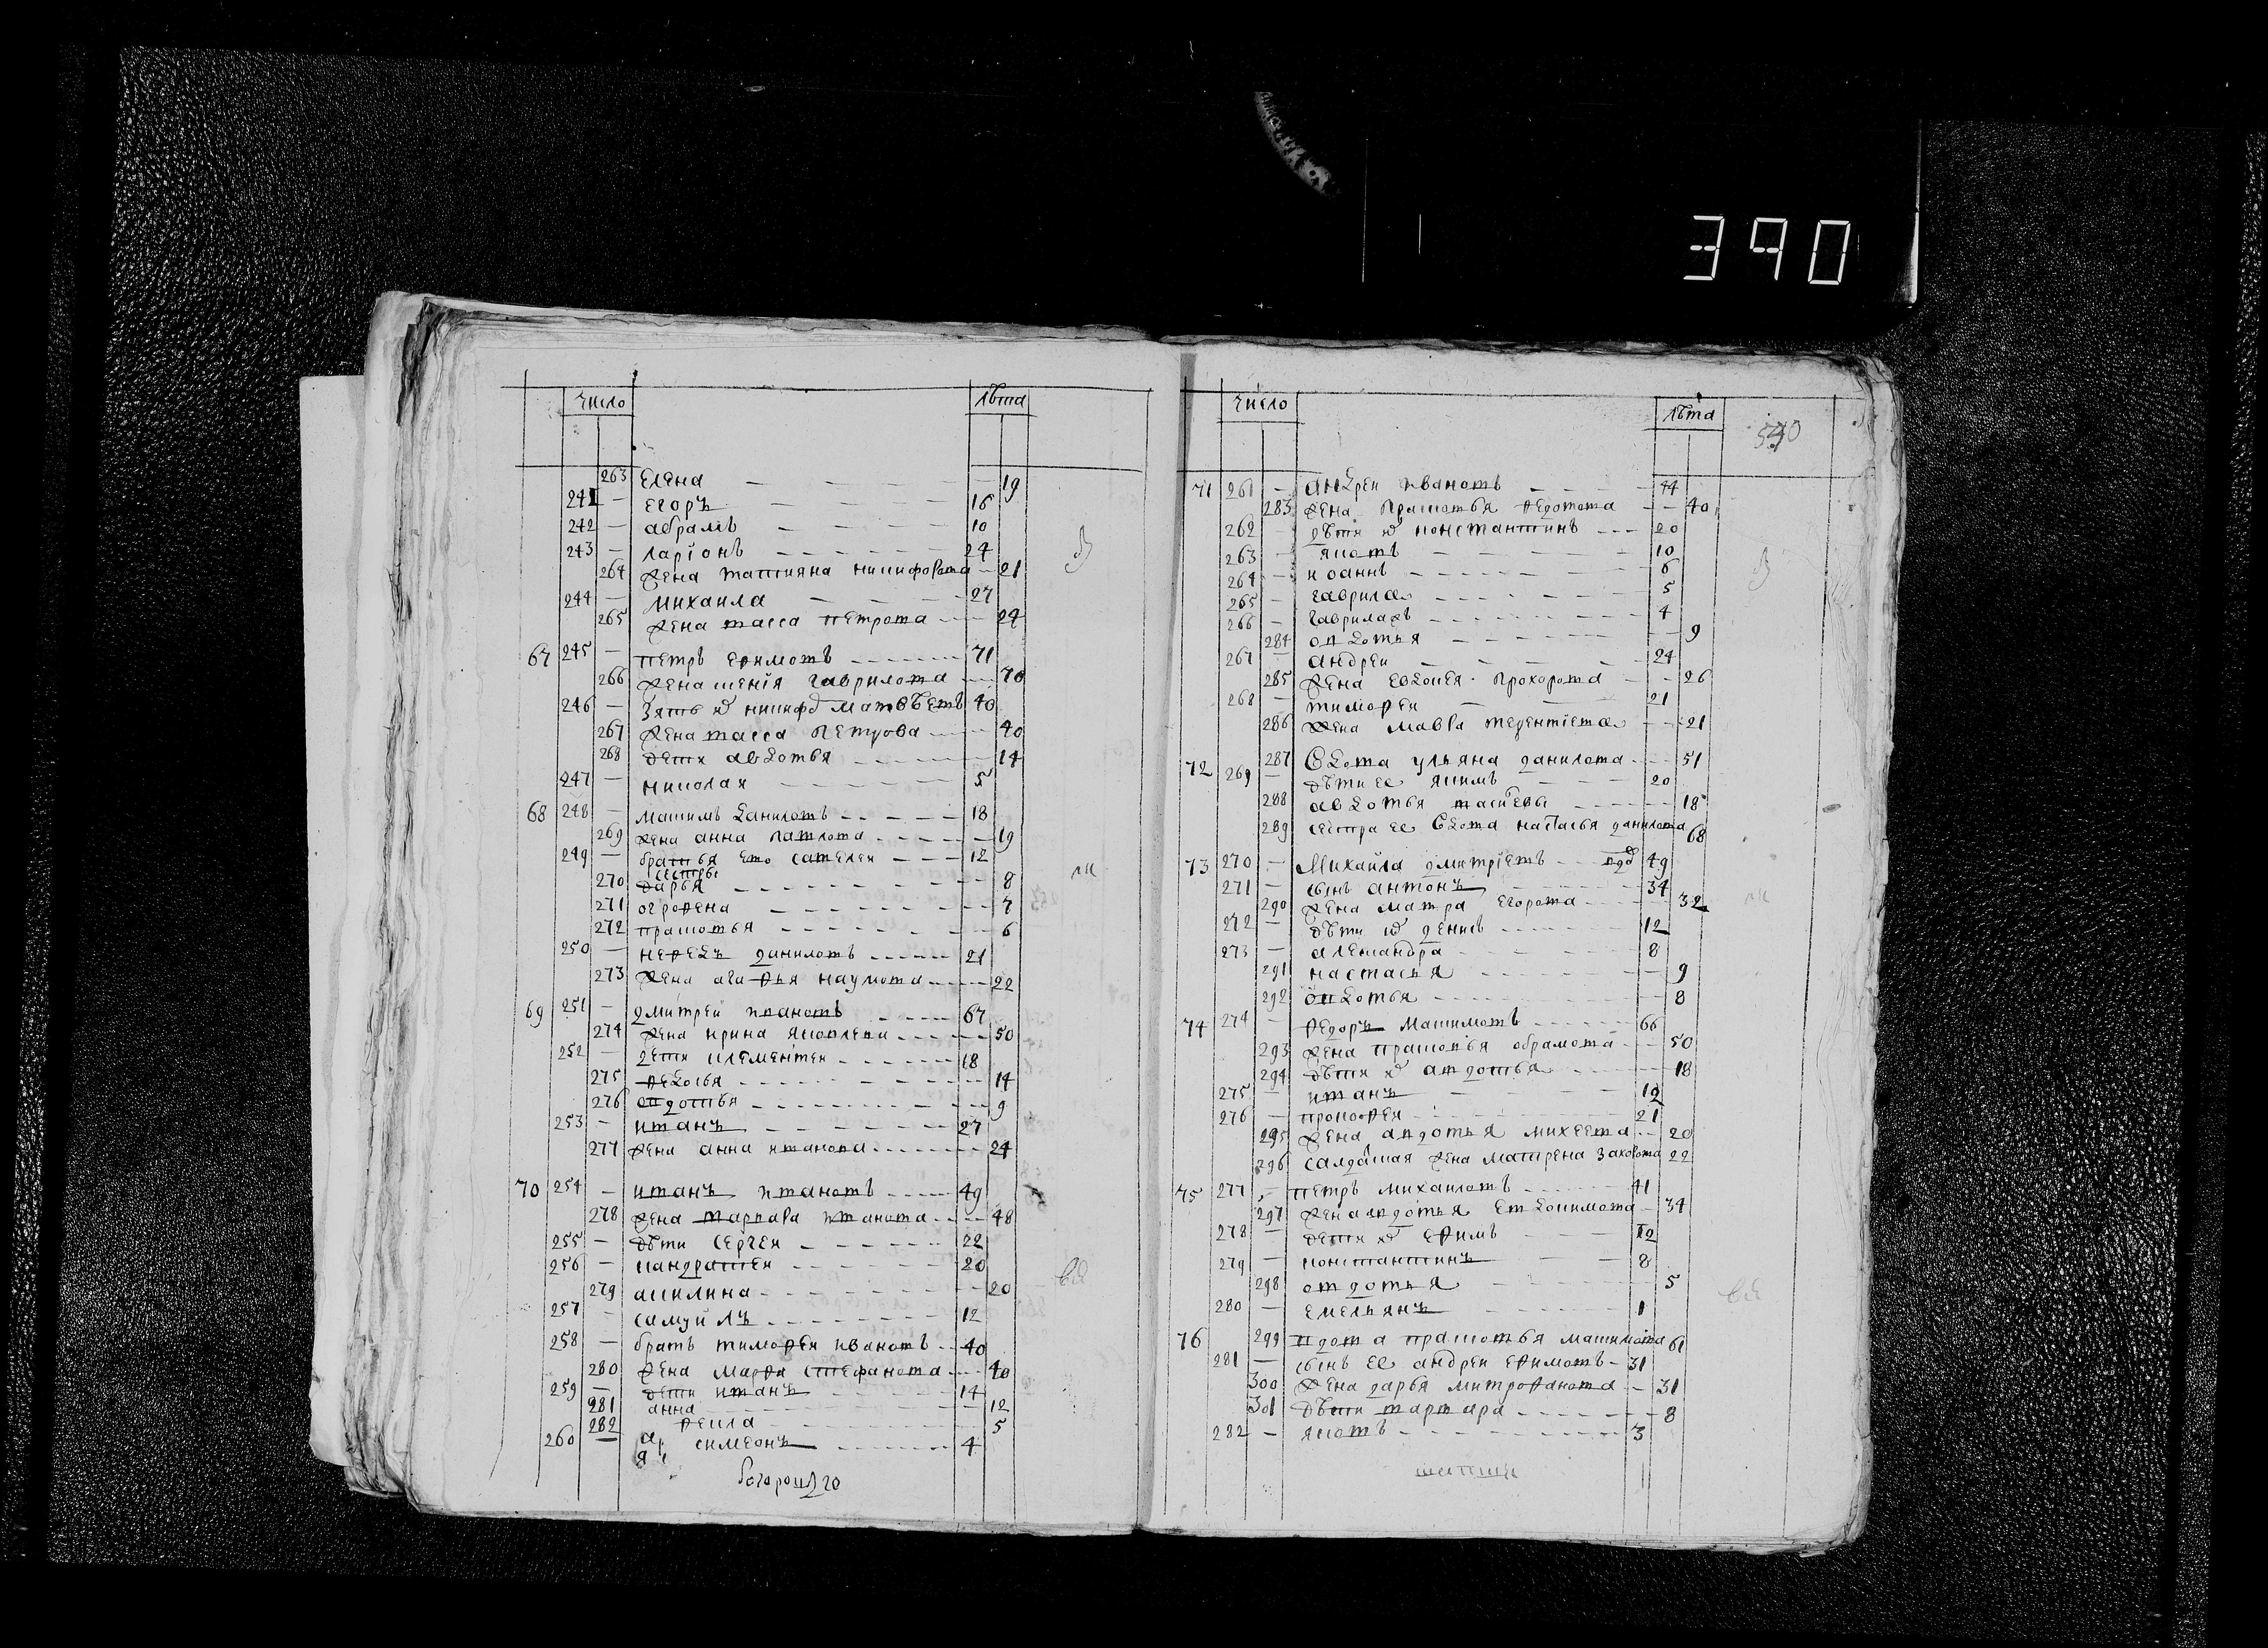 390
число лѣта
263 Елена 19
241 — Егоръ 16
242 — абрамъ 10
243 — ларіонъ 24
264 жена татияна никифорова 21
244 — михаила 27
265 жена васса петрова 24
67 245 — петръ ефимовъ 71
266 жена гаврилова 70
246 — зять ево никифоръ матвѣевъ 40
267 жена васса петрова 40
268 дети авдотья 14
247 — николай 5
68 248 — максимъ даниловъ 18
269 жена анна павлова 19
249 — братья ево савелеи 12
сестры
270 дарья 8
271 огрофена 7
272 прасковья 6
250 — нефедъ даниловъ 21
273 жена агафья наумова 22
69 251 — дмитреи ивановъ 67
274 жена ирина яковлева 50
252 — дети клементеи 18
275 федосья 14
276 овдотья 9
253 — иванъ 27
277 жена анна иванова 24
70 254 — иванъ ивановъ 49
278 жена варвара иванова 48
255 — дѣти сергеи 22
256 — кандратеи 20
279 акилина 20
257 — самуилъ 12
258 — братъ тимофеи ивановъ 40
280 жена марфа стефанова 40
259 — дети иванъ 14
281 анна 12
282 фекла 5
260 — симеонъ 4
число лѣта
71 261 — андреи ивановъ 44
283 жена прасковья федотова 40
262 — дѣти ево констаантинъ 20
263 — яковъ 10
264 — иоаннъ 6
265 — гаврила 5
266 — гаврила 4
284 овдотья 9
267 — андреи 24
285 жена евдокея прохорова 26
268 — тимофеи 21
286 жена мавра терентіева 21
72 287 вдова ульяна данилова 51
269 — дѣти ее якимъ 20
288 авдотья 18
289 сестра ее вдова настасья данилова 68
73 270 — михаила дмитріевъ 49
271 — сынъ антонъ 34
290 жена мавра егорова 32
272 — дѣти ево денисъ 12
273 — александра 8
291 настасья 9
292 овдотья 8
74 274 — федоръ максимовъ 66
293 жена прасковья обрамова 50
294 дѣти ево авдотья 18
275 — иванъ 12
276 — прокофеи 21
295 жена авдотья михеева 20
296 салдацкая жена матрена захорова 22
75 277 — петръ михаиловъ 41
297 жена авдотья евдокимова 34
278 — дети ево ефимъ 12
279 — констаантинъ 8
298 овдотья 5
280 — емельянъ 1
76 299 вдова прасковья максимова 61
281 — сынъ ее андреи ефимовъ 31
300 жена дарья митрофанова 31
301 дѣти варвара 8
282 — яковъ 3